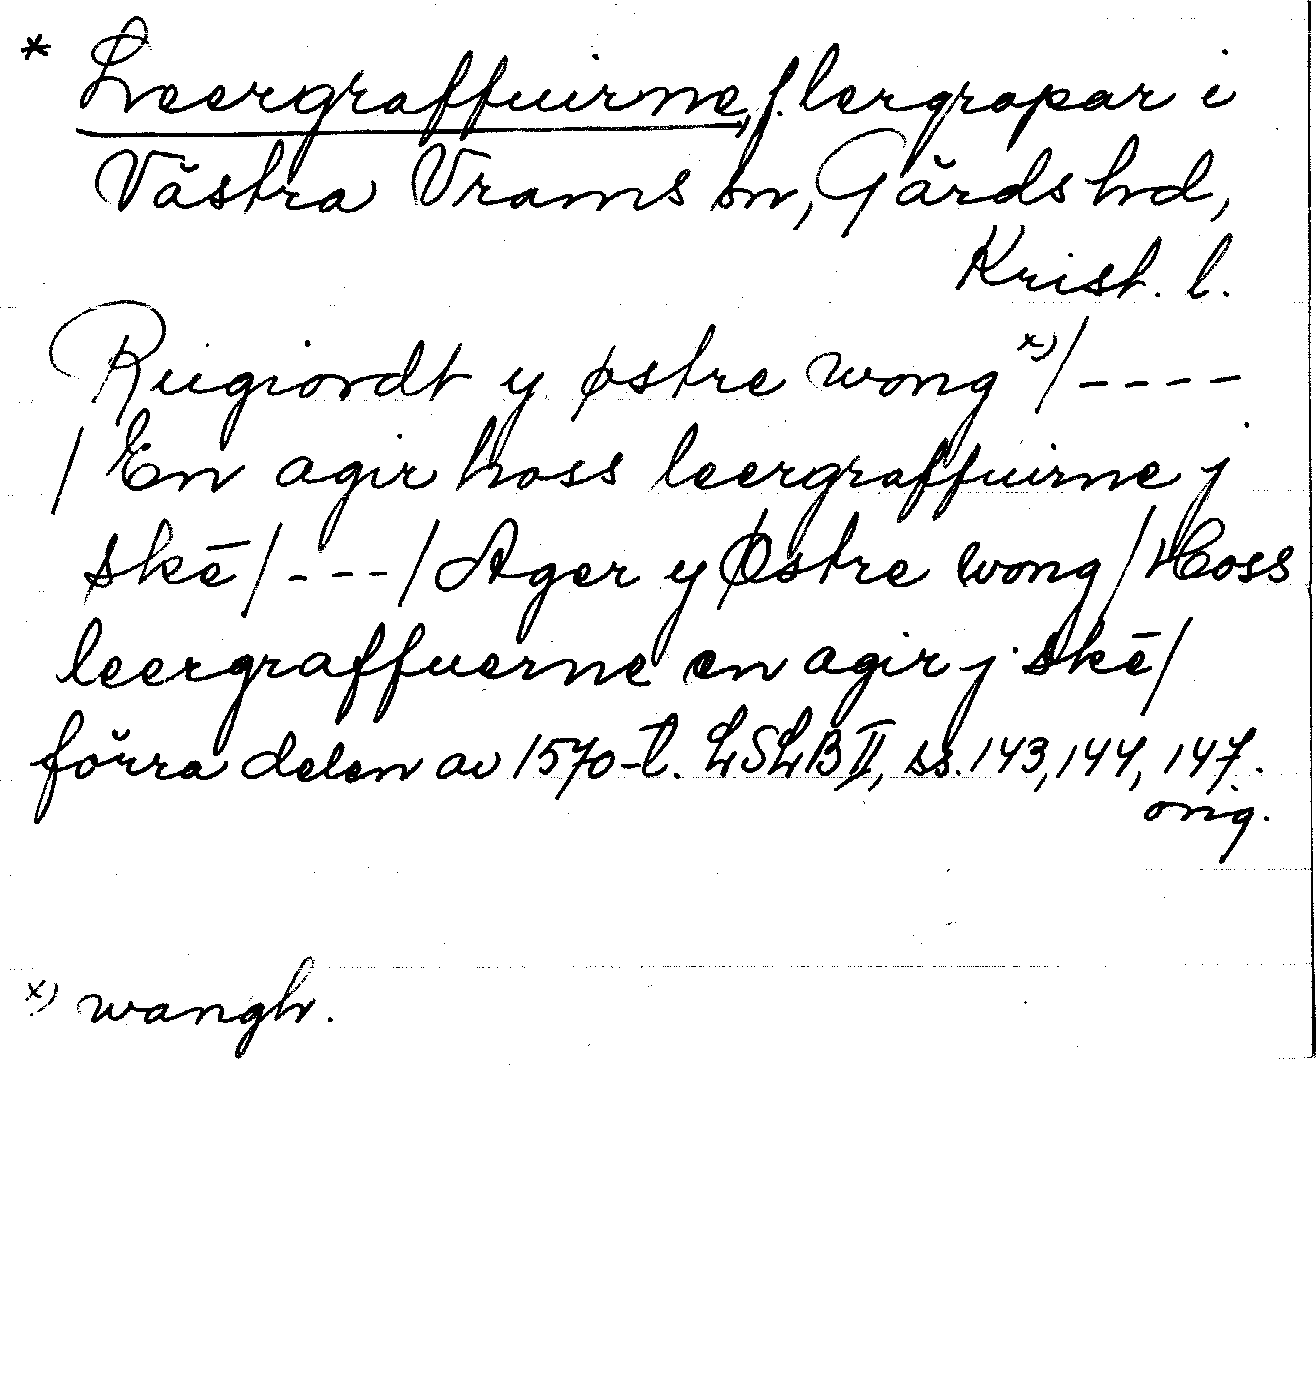 * Leergraffuirne, f. lergropar i
Västra Vrams sn, Gärds hd,
Krist. l.
Rugiordt y østre wong x)/----
/En agir hoss leergraffuirne j
skē/---/Ager y Østre wong/Hoss
leergraffuerne en agir j skē/
förra delen av 1570-t. LSLB II, ss. 143, 144, 147.
orig.
x) wangh.